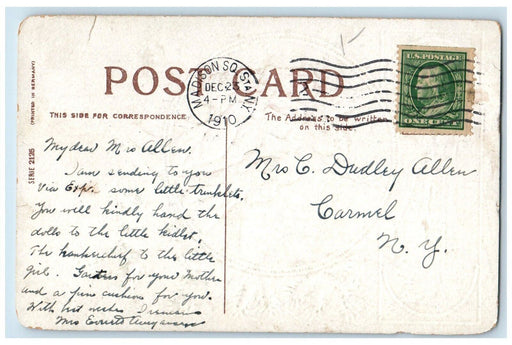 POST CARD
(PRINTED IN GERMANY)
SERIE 2135
THIS SIDE FOR CORRESPONDENCE.
The Address to be written
on this side.
MADISON SQ. STA. N.Y.
DEC 23
4-PM
1910
U.S. POSTAGE
ONE CENT
My dear Mrs Allen.
I am sending to you
Via Exp. some little trinklets.
You will kindly hand the
dolls to the little kidlet,
The hankerchief to the little
girl. Garters for your Mother
and a pin cushion for you.
With best wishes
Mrs
Mrs C. Dudley Allen
Carmel
N. Y.